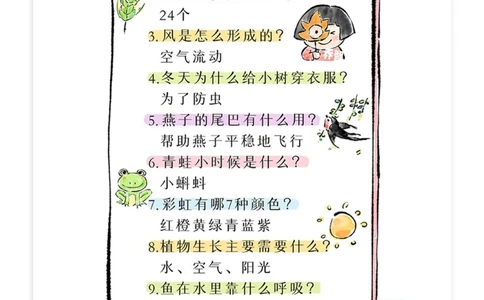 24个
3.风是怎么形成的?
空气流动
4.冬天为什么给小树穿衣服?
为了防虫
5.燕子的尾巴有什么用?
帮助燕子平稳地飞行
6.青蛙小时候是什么?
小蝌蚪
7.彩虹有哪7种颜色?
红橙黄绿青蓝紫
8.植物生长主要需要什么?
水、空气、阳光
9.鱼在水里靠什么呼吸?